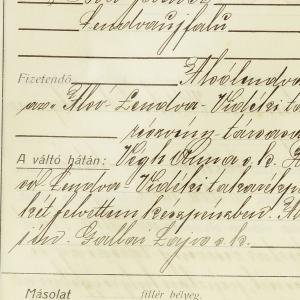 Lendvaujfalu
Fizetendő Alsólendva
az Alsó-Lendva-Vidéki ta
részvény-társasá
A váltó hátán: Végh Anna s. k.
Lendva-Vidéki takarékp
két felvettem készpénzben.
Gallai Lajos s. k.
Másolat fillér bélyeg.